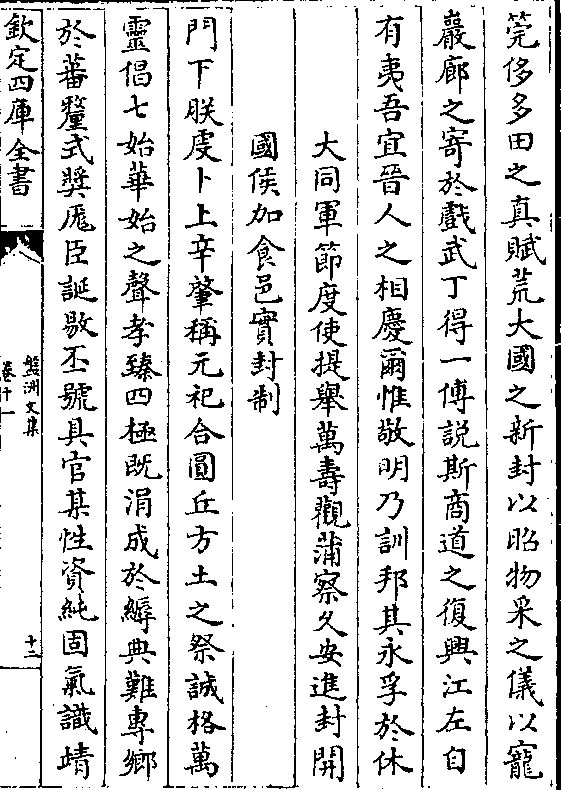 筦侈多田之真賦荒大國之新封以昭物采之儀以寵
巖廊之寄於戲武丁得一傅說斯商道之復興江左自
有夷吾宜晉人之相慶爾惟敬明乃訓邦其永孚於休
大同軍節度使提舉萬壽觀蒲察久安進封開
國侯加食邑實封制
門下朕虔卜上辛肇稱元祀合圓丘方土之祭誠格萬
靈倡七始華始之聲孝臻四極既涓成於縟典難專鄉
於蕃釐式獎厖臣誕敭丕號具官某性資純固氣識靖
欽定四庫全書
盤洲文集
卷十一
十二